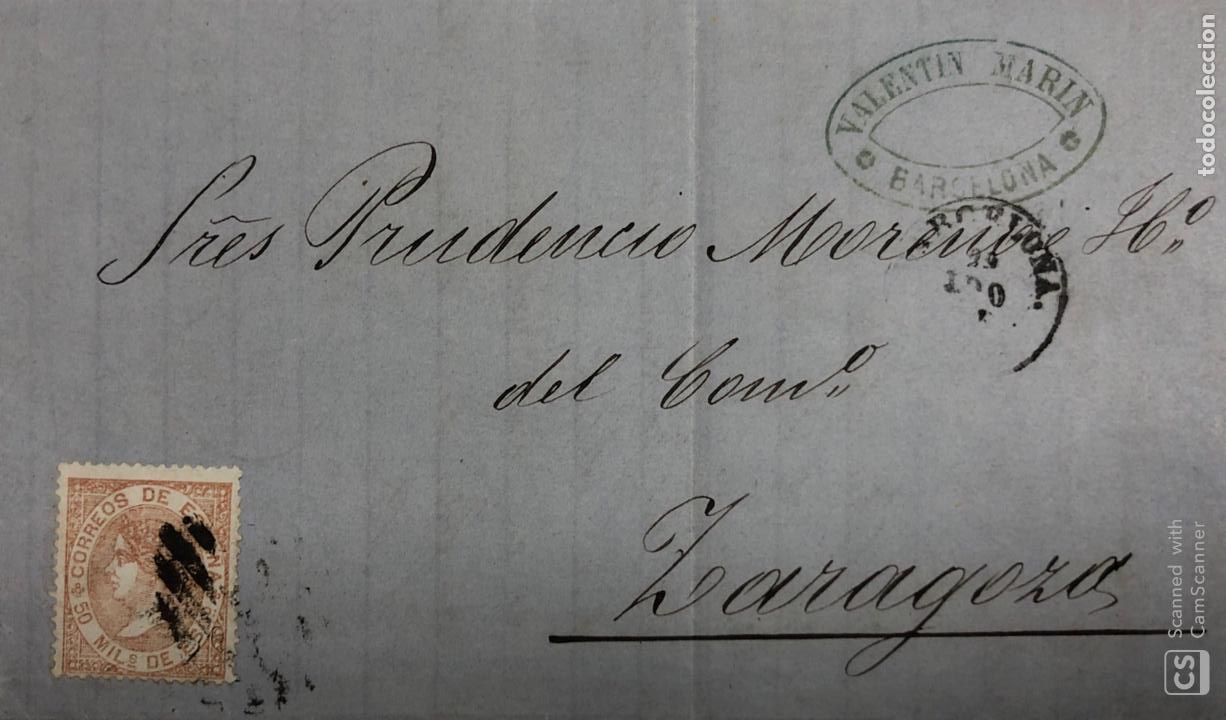 VALENTIN MARIN
BARCELONA
Sres Prudencio Moreno é Hº
del Comº
Zaragoza
CORREOS DE ESPAÑA
50 MILS DE
todocoleccion
CS Scanned with
CamScanner